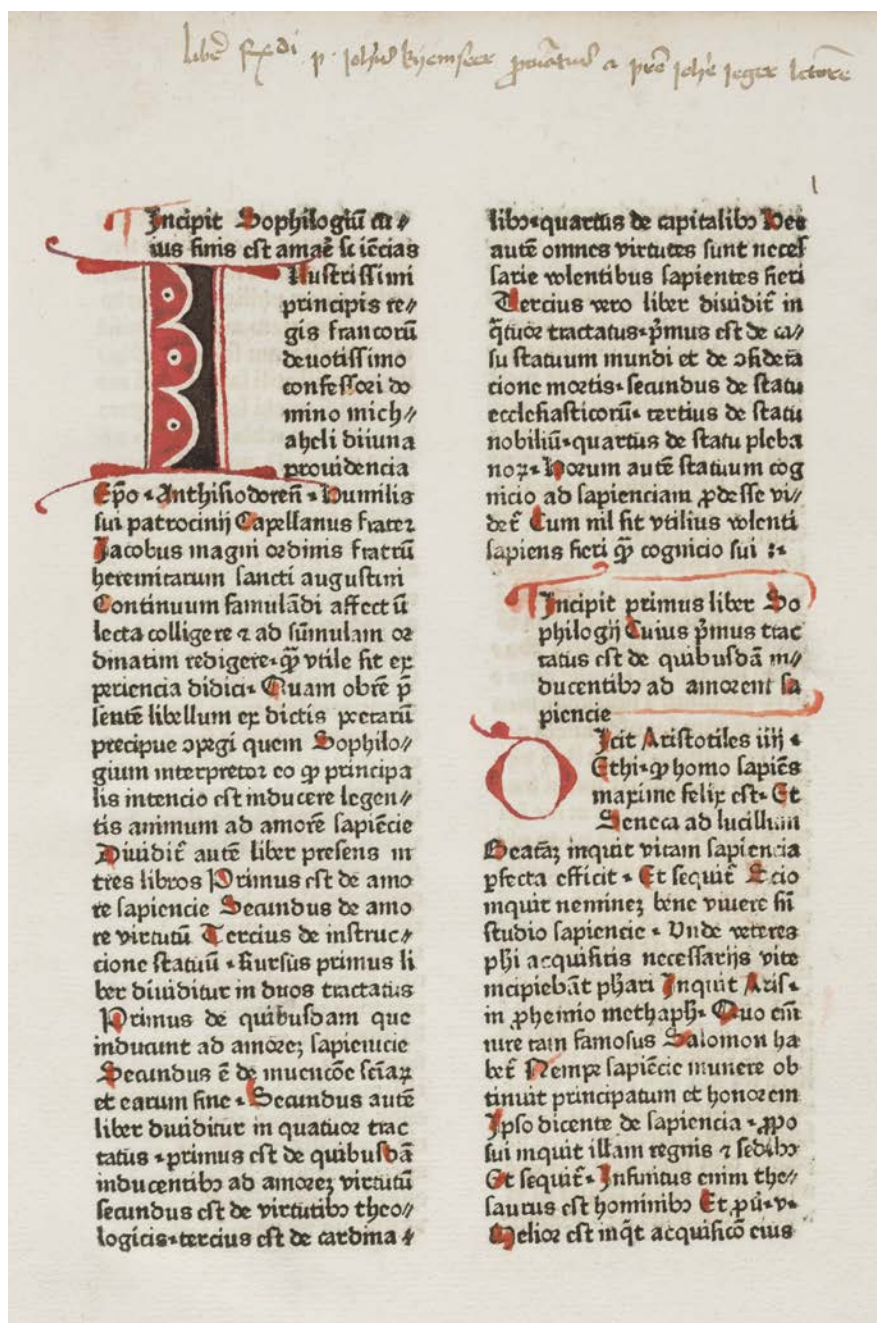 1
Incipit Sophilogiū cu⸗
ius finis est amar̄e sciēcias
Illustrissimi
principis re⸗
gis francorū
deuotissimo
confessori do
mino mich⸗
aheli diiuna
prouidencia
Ep̄o · Anthisiodoreñ · Humilis
sui patrocinij Capellanus frater
Jacobus magni ordinis fratrū
heremitarum sancti augustini
Continuum famulādi affectū
lecta colligere ⁊ ad sūmulam or
dinatim redigere · ꝙ vtile sit ex
periencia didici · Quam obrē p̄
sentē libellum ex dictis poetarū
precipue ꝯpegi quem Sophilo⸗
gium interpretor eo ꝙ principa
lis intencio est inducere legen⸗
tis animum ad amorē sapiēcie
Diuidit̄ autē liber presens in
tres libros Primus est de amo
re sapiencie Secundus de amo
re virtutū Tercius de instruc⸗
cione statuū · Rursus primus li
ber diuiditur in duos tractatus
Primus de quibusdam que
inducunt ad amoreꝫ sapiencie
Secundus ē de inuencōe sciaꝝ
et earum fine · Secundus autē
liber diuiditur in quatuor trac
tatus · primus est de quibusdā
inducentibꝫ ad amoreꝫ virtutū
secundus est de virtutibꝫ theo⸗
logicis · tercius est de cardina⸗
libꝫ · quartus de capitalibꝫ Hee
autē omnes virtutes sunt necef
sarie volentibus sapientes fieri
Tercius vero liber diuidit̄ in
q̄tuor tractatus · p̄mus est de ca⸗
su statuum mundi et de ꝯsidera
cione mortis · secundus de statu
ecclesiasticorū · tertius de statu
nobiliū · quartus de statu pleba
noꝝ · Horum autē statuum cog
nicio ad sapienciam ꝓdesse vi⸗
det̄ Cum nil sit vtilius volenti
sapiens fieri ꝙ̄ cognicio sui :·
Incipit primus liber So
philogij Cuius p̄mus trac
tatus est de quibusdā in⸗
ducentibꝫ ad amorem sa
piencie
Dicit Aristotiles iiij ·
Ethi · ꝙ homo sapiēs
maxime felix est · Et
Seneca ad lucillum
Beataꝫ inquit vitam sapiencia
ꝑfecta efficit · Et sequit̄ Scio
inquit nemineꝫ bene viuere sñ
studio sapiencie · Vnde veteres
phi acquisitis necessarijs vite
incipiebāt phari Inquit Aris ·
in ꝓhemio methaph · Quo em̄
iure tam famosus Salomon ha
bet̄ Nempe sapiēcie munere ob
tinuit principatum et honorem
Ipso dicente de sapiencia · ꝓpo
sui inquit illam regnis ⁊ sedibꝫ
Et sequit̄ · Infinitus enim the⸗
saurus est hominibꝫ Et ꝓũ · v ·
Melior est inq̄t acquisicō eius